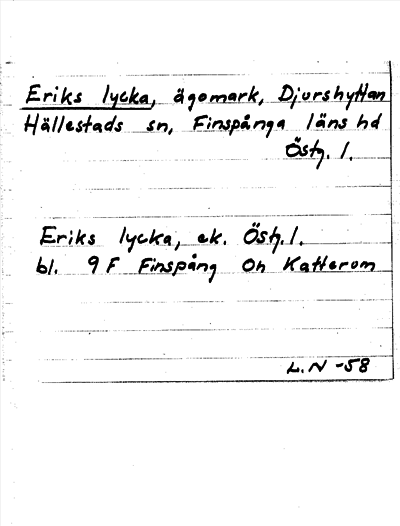 Eriks lycka, ägomark, Djurshyttan
Hällestads sn, Finspånga läns hd
Östg. l.
Eriks lycka, ek. Östg. l.
bl. 9 F Finspång Öh Katterom
L.N -58